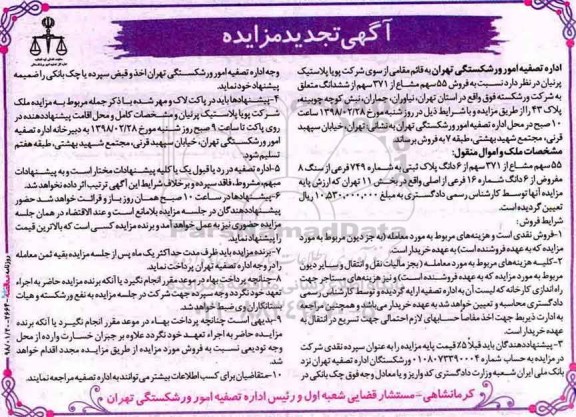 آگهی تجدید مزایده
اداره تصفیه امور ورشکستگی تهران به قائم مقامی از سوی شرکت پویا پلاستیک
پرنیان در نظر دارد نسبت به فروش ۵۵ سهم مشاع از ۳۷۱ سهم از ششدانگ متعلق
به شرکت ورشکسته فوق واقع در استان تهران، نیاوران، جماران، نبش کوچه چوبینه،
پلاک ۴۳ را از طریق مزایده و با شرایط ذیل در روز شنبه مورخ ۱۳۹۸/۰۲/۲۸ ساعت
۱۰ صبح در محل اداره تصفیه امور ورشکستگی تهران به نشانی تهران، خیابان سپهبد
قرنی، مجتمع شهید بهشتی، طبقه ۷ به فروش برساند.
مشخصات ملک و اموال منقول:
۵۵ سهم مشاع از ۳۷۱ سهم از ۶ دانگ پلاک ثبتی به شماره ۷۴۹ فرعی از سنگ ۸
مفروض از ۶ دانگ شماره ۱۶ فرعی از اصلی واقع در بخش ۱۱ تهران که ارزش پایه
مزایده آنها توسط کارشناس رسمی دادگستری به مبلغ ۱۰,۵۳۰,۰۰۰,۰۰۰ ریال
تعیین گردیده است.
شرایط فروش:
۱-فروش نقدی است و هزینه‌های مربوط به مورد معامله (به جز دیون مربوط به مورد
مزایده که به عهده فروشنده است) به عهده خریدار است.
۲-کلیه هزینه‌های مربوط به مورد معامله (بجز مالیات نقل و انتقال و سایر دیون
مربوط به مورد مزایده که به عهده فروشنده است) و نیز هزینه‌های
راه اندازی کارخانه که لیست آن به اداره تصفیه ارایه گردیده و توسط کارشناس رسمی
دادگستری محاسبه و تعیین خواهد شد به عهده خریدار می‌باشد و همچنین مراجعه
به ادارات ذیربط جهت اخذ مفاصا حسابهای لازم احتمالی جهت تسریع در انتقال به
عهده خریدار است.
۳-پیشنهاددهندگان باید قبلاً ۵٪ قیمت پایه مزایده را به عنوان سپرده نقدی شرکت
در مزایده به حساب شماره ۰۱۰۸۰۷۳۳۹۰۰۰۴ ورشکستگان اداره تصفیه تهران نزد
بانک ملی ایران شعبه وزارت دادگستری کد واریز و یا معادل وجه فوق چک بانکی در
وجه اداره تصفیه امور ورشکستگی تهران اخذ و قبض سپرده یا چک بانکی را ضمیمه
پیشنهاد خود نماید.
۴-پیشنهادها باید در پاکت لاک و مهر شده با ذکر جمله مربوط به مزایده ملک
شرکت پویا پلاستیک پرنیان و مشخصات کامل و محل اقامت پیشنهاددهنده در
روی پاکت تا ساعت ۹ صبح روز شنبه مورخ ۱۳۹۸/۰۲/۲۸ به دبیرخانه اداره تصفیه
امور ورشکستگی تهران، خیابان سپهبد قرنی، مجتمع شهید بهشتی، طبقه هفتم
تسلیم شود.
۵-اداره تصفیه در رد یا قبول یک یا کلیه پیشنهادات مختار است و به پیشنهادات
مبهم، مشروط، فاقد سپرده و برخلاف شرایط این آگهی ترتیب اثر داده نخواهد شد.
۶-پیشنهادها در ساعت ۱۰ صبح همان روز باز و قرائت خواهد شد حضور
پیشنهاددهندگان در جلسه مزایده بلامانع است و عندالاقتضاء در همان جلسه
مزایده حضوری نیز به عمل خواهد آمد و برنده مزایده کسی است که بالاترین قیمت
را پیشنهاد نماید.
۷-برنده مزایده باید ظرف مدت حداکثر یک ماه پس از جلسه مزایده بقیه ثمن معامله
را در وجه اداره تصفیه تهران پرداخت نماید.
۸-چنانچه پرداخت بهاء در موعد مقرر انجام نگیرد یا آنکه برنده مزایده حاضر به اجراء
تعهد خود نگردد وجه سپرده جهت شرکت در جلسه مزایده به نفع ورشکسته و هیات
بستانکاران وی ضبط خواهد شد.
۹-بدیهی است چنانچه پرداخت بهاء در موعد مقرر انجام نگیرد و یا آنکه برنده
مزایده حاضر به اجراء تعهد خود نگردد علاوه بر جبران خسارت وارده از محل
وجه تودیعی نسبت به فروش مورد مزایده از طریق مزایده مجدد اقدام خواهد
شد.
۱۰-متقاضیان برای کسب اطلاعات بیشتر می‌توانند به اداره تصفیه مراجعه نمایند.
کرمانشاهی - مستشار قضایی شعبه اول و رئیس اداره تصفیه امور ورشکستگی تهران